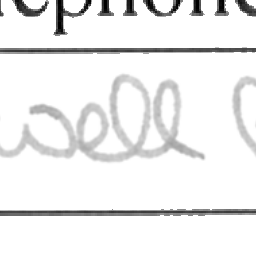 ephone
well